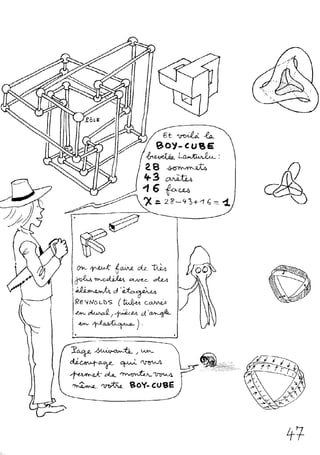 PÔLE
Et voilà le
BOY-CUBE
breveté Lanturlu :
28 sommets
43 arêtes
16 faces
χ = 28-43+16 = 1
on peut faire de très
jolis modèles avec des
éléments d'étagères
REYNOLDS (tubes carrés
en dural, pièces d'angle
en plastique).
Page suivante, un
découpage qui vous
permet de monter vous
même votre BOY-CUBE
47